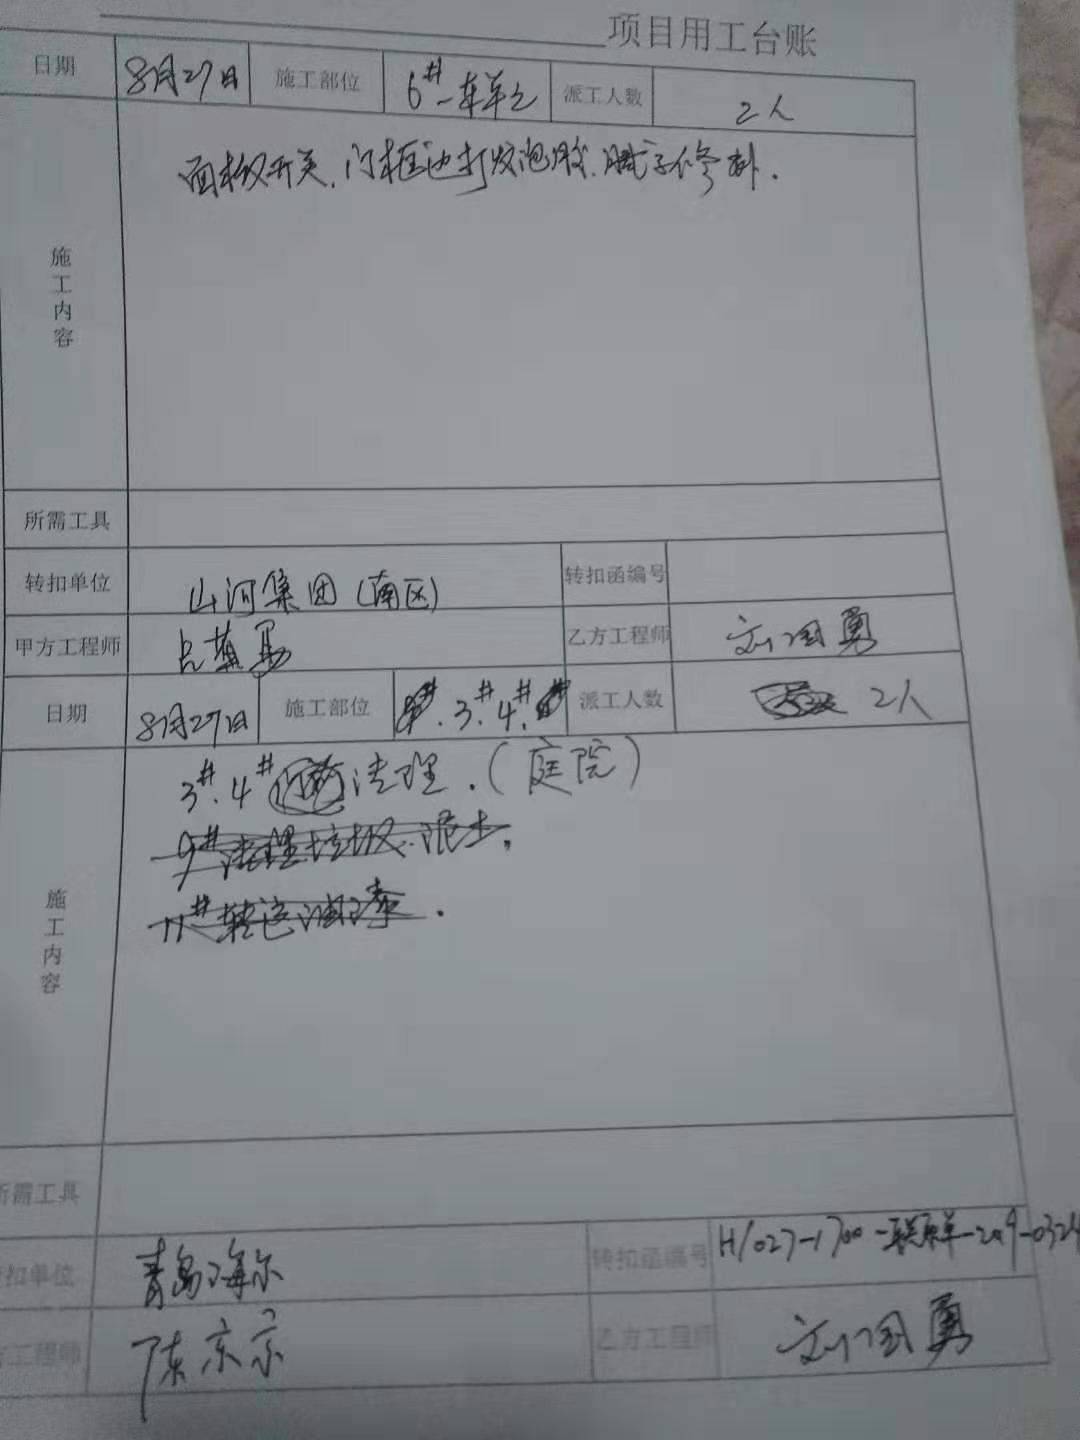 项目用工台账
日期 8月27日 施工部位 6# 一单 派工人数 2人
施工内容
面板开关.门框边打发泡胶.腻子修补.
所需工具
转扣单位 山河集团(南区) 转扣函编号
甲方工程师 乙方工程师 刘国勇
日期 8月27日 施工部位 3#.4#. 派工人数 2人
施工内容
3#.4# 清理.(庭院)
9#清理垃圾.混土,
11#转运油漆.
所需工具
扣单位 青岛海尔 转扣函编号 H1027-1700-联系单-2019-0324
工程师 陈京京 乙方工程师 刘国勇